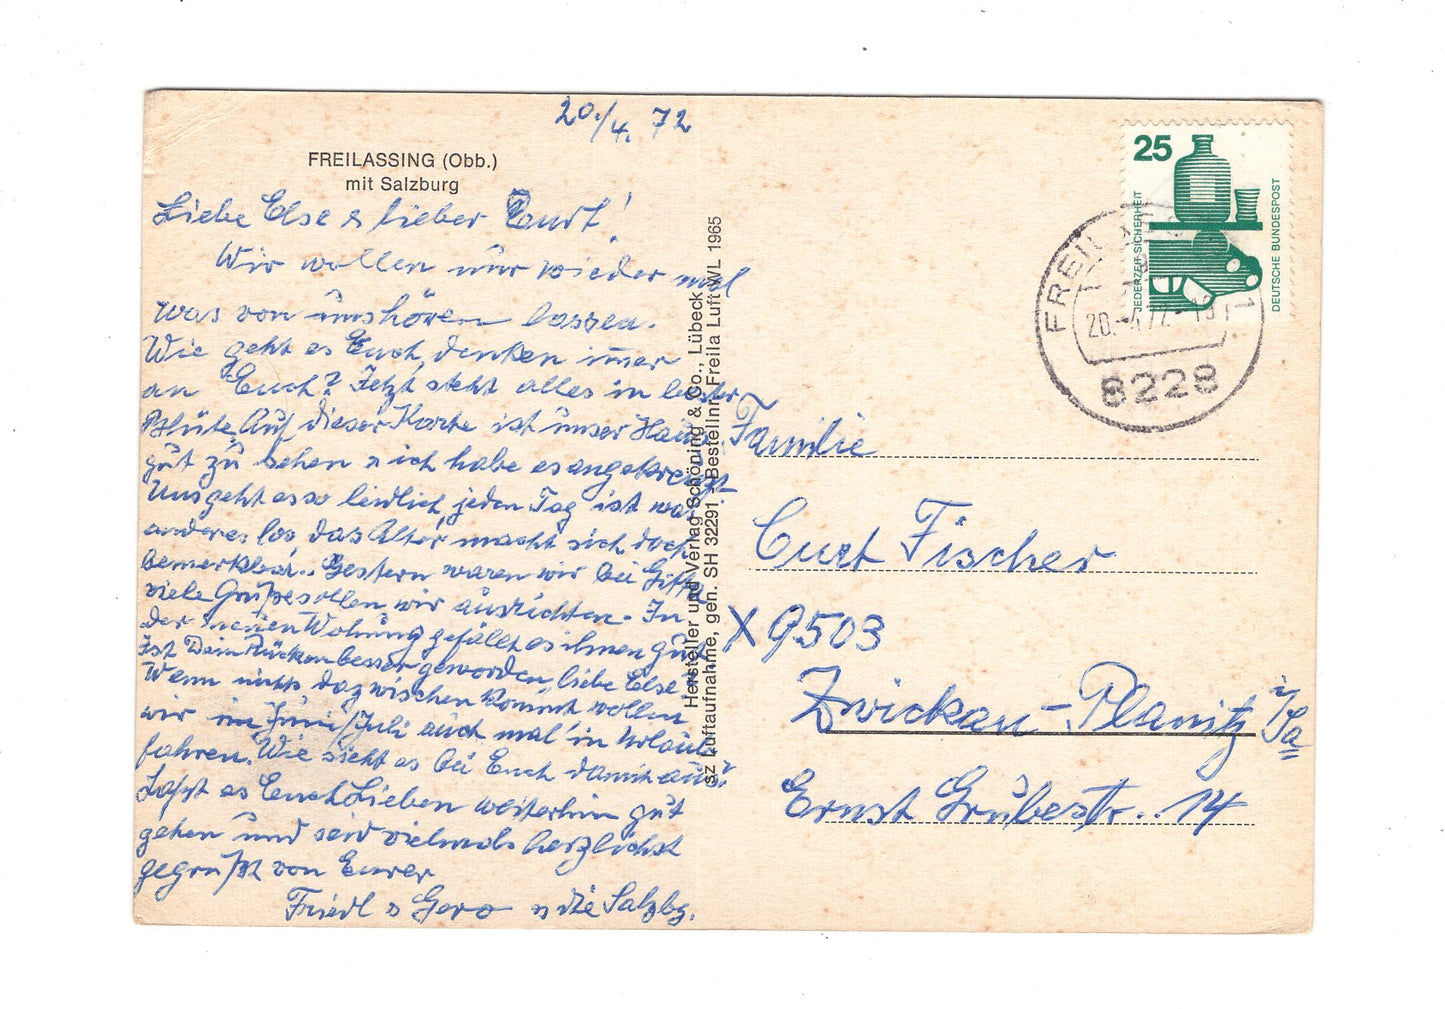 20./4. 72
FREILASSING (Obb.)
mit Salzburg
Liebe Else & lieber Curt!
Wir wollen nur wieder mal
was von uns hören lassen.
Wie geht es Euch, denken im̄er
an Euch? Jetzt steht alles in bester
Blüte. Auf dieser Karte ist unser Haus
gut zu sehen & ich habe es angekreuzt
Uns geht es so leidlich, jeden Tag ist was
anderes los das Alter macht sich doch
bemerkbar. Gestern waren wir bei Gitta
viele Grüße sollen wir ausrichten. In
der neuen Wohnung gefällt es ihnen gut.
Ist Dein Rücken besser geworden, liebe Else?
Wenn nichts dazwischen kommt wollen
wir im Juni/Juli auch mal in Urlaub
fahren. Wie sieht es bei Euch damit aus?
Laßt es Euch Lieben weiterhin gut
gehen und seid vielmals herzlichst
gegrüßt von Eurer
Friedl & Gero & die Salzbg.
Hersteller und Verlag Schöning & Co., Lübeck
sz Luftaufnahme, gen. SH 32291 - Bestellnr. Freila Luft WL 1965
25
JEDERZEIT SICHERHEIT
DEUTSCHE BUNDESPOST
20.-4.72
8228
Familie
Curt Fischer
X 9503
Zwickau-Planitz i/Sa
Ernst Grubestr.. 14